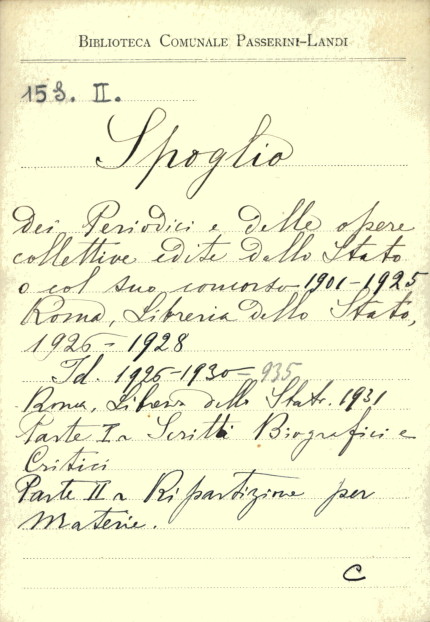 BIBLIOTECA COMUNALE PASSERINI-LANDI
153. II.
Spoglio
Dei Periodici e delle opere
collettive edite dallo Stato
o col suo concorso - 1901-1925
Roma, Libreria dello Stato,
1926 - 1928
Id. 1926-1930 = 935
Roma, Libreria dello Stato. 1931
Parte Iª Scritti Biografici e
Critici
Parte IIª Ripartizione per
Materie.
C